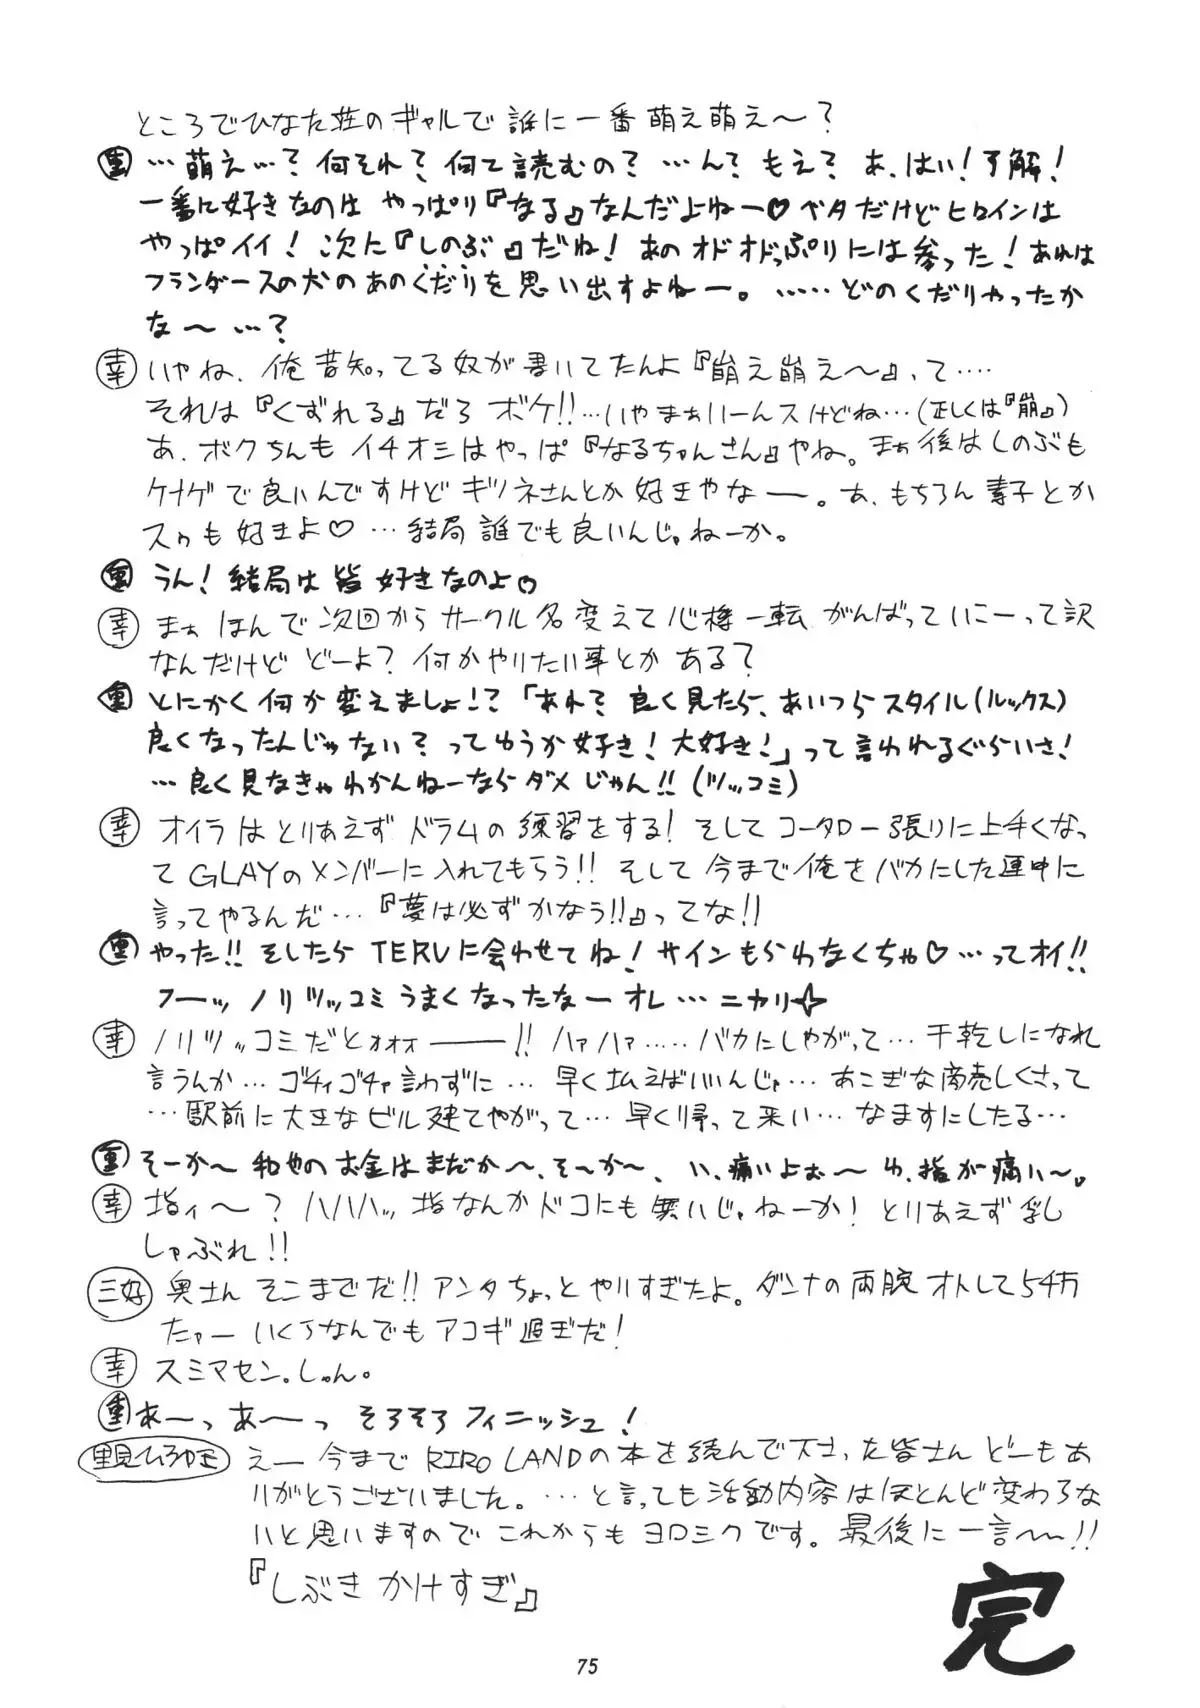 ところでひなた荘のギャルで誰に一番萌え萌え～?
…萌え…?何それ?何て読むの?…ん?もえ?あ、はい!了解!
一番に好きなのはやっぱり『なる』なんだよねー♡ベタだけどヒロインは
やっぱイイ!次に『しのぶ』だね!あのオドオドっぷりには参った!あれは
フランダースの犬のあのくだりを思い出すよねー。……どのくだりやったか
な～…?
幸 いやね、俺昔知ってる奴が書いてたんよ『崩え崩え～』、って‥‥
それは『くずれる』だろボケ!!…いやまぁいーんスけどね…(正しくは『崩』)
あ、ボクちんもイチオシはやっぱ『なるちゃんさん』やね。まぁ後はしのぶも
ケナゲで良いんですけどキツネさんとか好きやなー。あ、もちろん素子とか
スゥも好きよ♡…結局誰でも良いんじゃねーか。
うん!結局は皆好きなのよ♡
幸 まぁほんで次回からサークル名変えて心機一転がんばっていこーって訳
なんだけどどーよ?何かやりたい事とかある?
とにかく何か変えましょ!?「あれ?良く見たら、あいつらスタイル(ルックス)
良くなったんじゃない?ってゆうか好き!大好き!」って言われるぐらいさ!
…良く見なきゃわかんねーならダメじゃん!!(ツッコミ)
幸 オイラはとりあえずドラムの練習をする!そしてコータロー張りに上手くなっ
てGLAYのメンバーに入れてもらう!!そして今まで俺をバカにした連中に
言ってやるんだ…『夢は必ずかなう!!』ってな!!
やった!!そしたらTERUに会わせてね!サインもらわなくちゃ♡…ってオイ!!
フーッノリツッコミうまくなったなーオレ…ニカリ☆
幸 ノリツッコミだとォォォ――!!ハァハァ……バカにしやがって…干乾しになれ
言うんか…ゴチィゴチャ言わずに…早く払えばいいんじゃ…あこぎな商売しくさって
…駅前に大きなビル建てやがって…早く帰って来い…なますにしたる…
そーか～和也のお金はまだか～、そ～か～、い、痛いよぉ～ゆ、指が痛い～。
幸 指ィ～?ハハハッ指なんかドコにも無いじゃねーか!とりあえず乳
しゃぶれ!!
三好 奥さんそこまでだ!!アンタちょっとやりすぎたよ。ダンナの両腕オトして5千万
たァーいくらなんでもアコギ過ぎだ!
幸 スミマセン。しゅん。
あーっあ～っそろそろフィニッシュ!
里見ひろゆき えー今までRIRO LANDの本を読んで下さった皆さんどーもあ
りがとうございました。…と言っても活動内容はほとんど変わらな
いと思いますのでこれからもヨロシクです。最後に一言～!!
『しぶきかけすぎ』
完
75